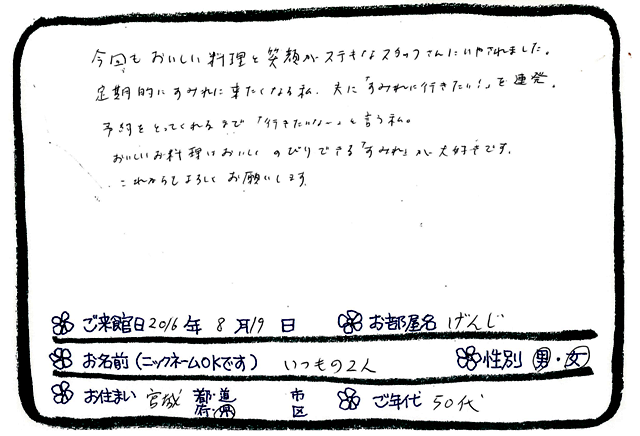 今回も おいしい 料理と 笑顔が ステキなスタッフさんにいやされました。
定期的に すみれに 来たくなる私、夫に「すみれに行きたい!」を 連発。
予約を とってくれるまで 「行きたいなー」と 言う私。
おいしいお料理に おいしく のびりできる「すみれ」が、大好きです。
これからもよろしく お願いします
ご来館日 2016 年 8 月 19 日 お部屋名 げんじ
お名前(ニックネームOKです) いつもの2人 性別 男・女
お住まい 宮城 都・道 府・県 市 区 ご年代 50代